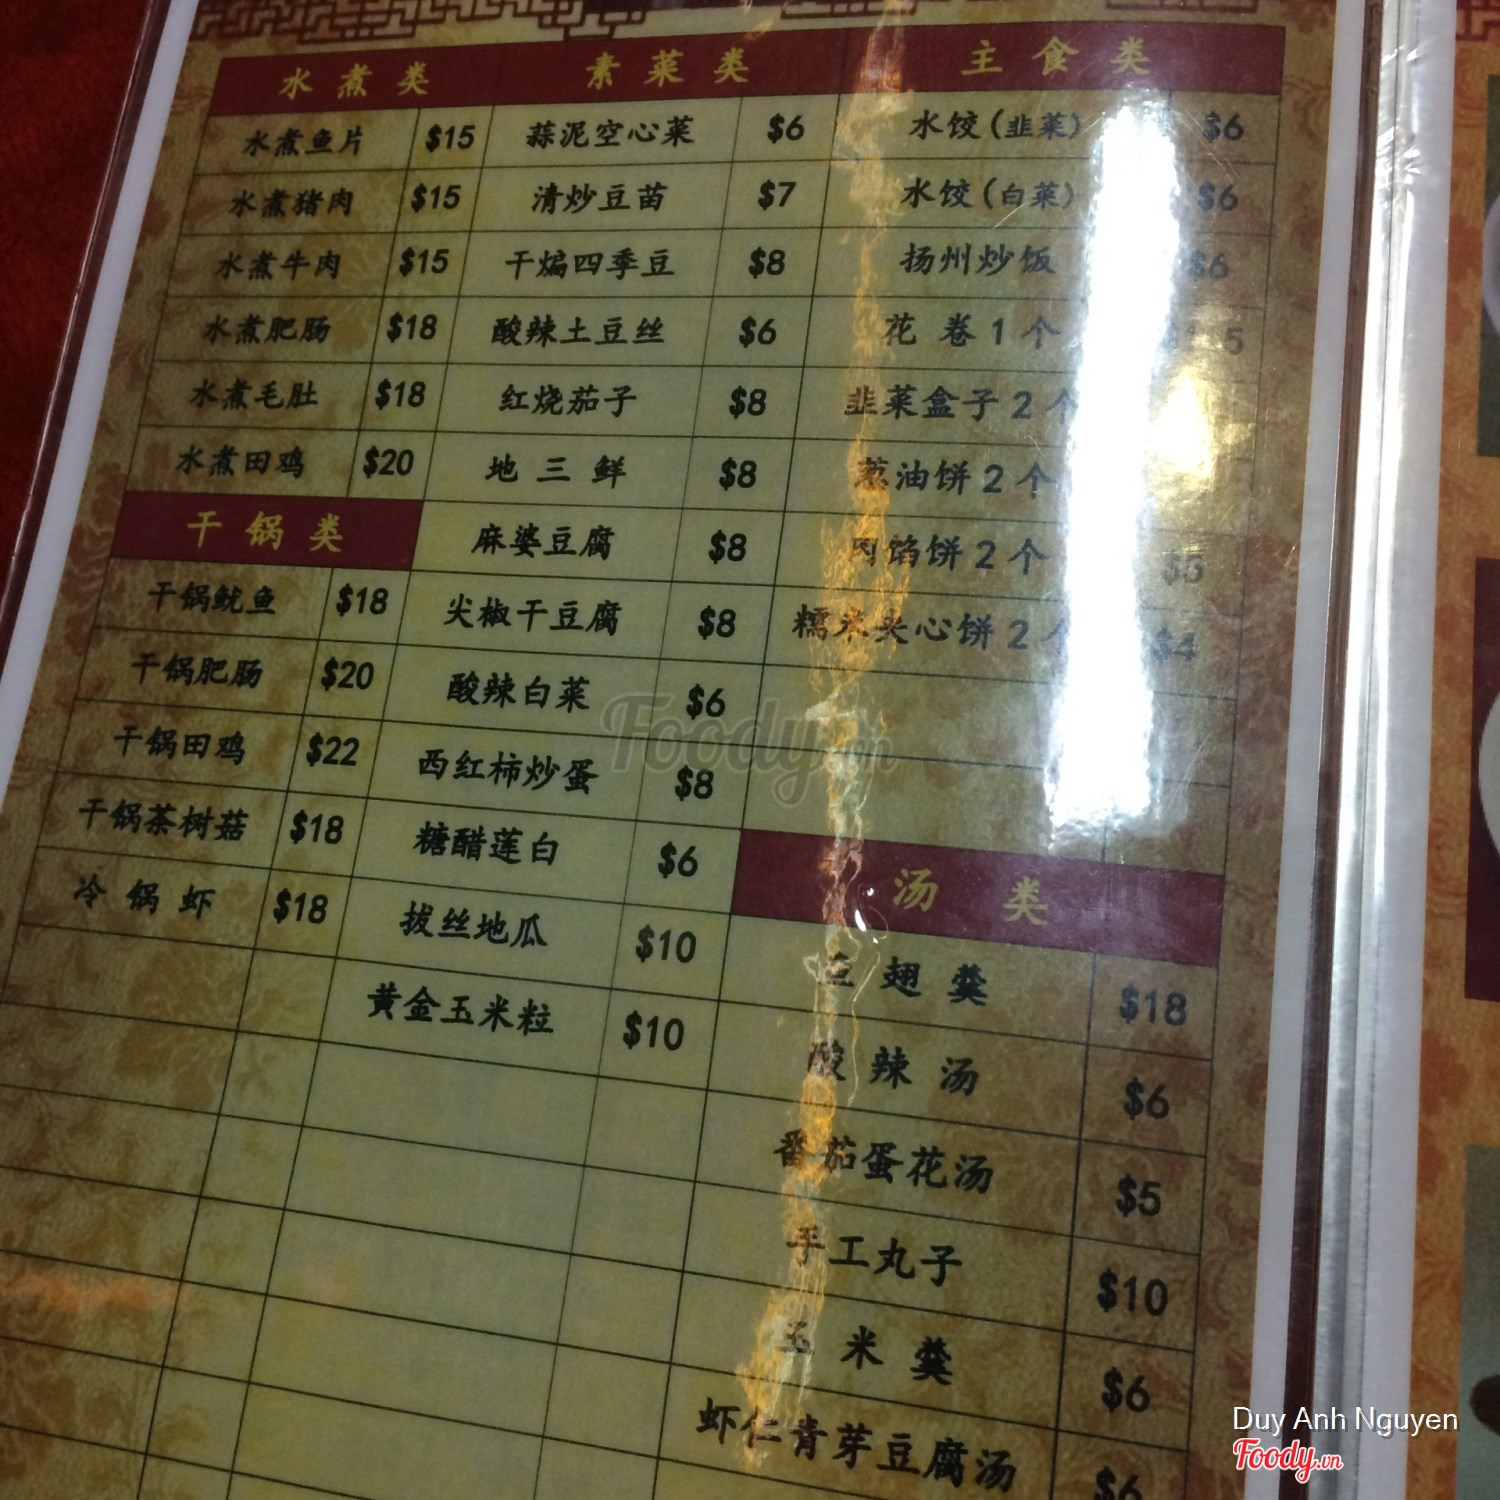 水煮类
水煮鱼片 $15
水煮猪肉 $15
水煮牛肉 $15
水煮肥肠 $18
水煮毛肚 $18
水煮田鸡 $20
干锅类
干锅鱿鱼 $18
干锅肥肠 $20
干锅田鸡 $22
干锅茶树菇 $18
冷锅虾 $18
素菜类
蒜泥空心菜 $6
清炒豆苗 $7
干煸四季豆 $8
酸辣土豆丝 $6
红烧茄子 $8
地三鲜 $8
麻婆豆腐 $8
尖椒干豆腐 $8
酸辣白菜 $6
西红柿炒蛋 $8
糖醋莲白 $6
拔丝地瓜 $10
黄金玉米粒 $10
主食类
水饺(韭菜) $6
水饺(白菜) $6
扬州炒饭 $6
花卷1个
韭菜盒子2个
葱油饼2个
肉馅饼2个 $5
糯米夹心饼2个 $4
汤类
鱼翅羹 $18
酸辣汤 $6
番茄蛋花汤 $5
手工丸子 $10
玉米羹 $6
虾仁青芽豆腐汤 $6
Foody.vn
Duy Anh Nguyen
Foody.vn